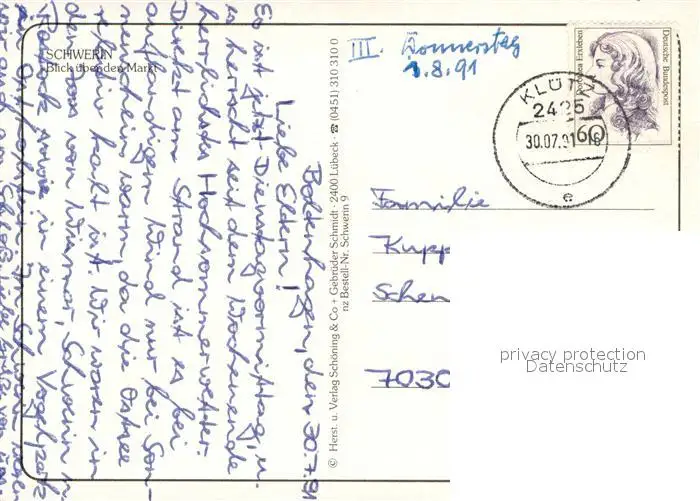 SCHWERIN
Blick über den Markt
Boltenhagen, den 30.7.91
Liebe Eltern!
Es ist jetzt Dienstagvormittag, u.
so herrscht seit dem Wochenende
herrlichstes Hochsommerwetter.
Direkt am Strand ist es bei
auflandigem Wind nur bei Son-
nenschein warm, da die Ostsee
kalt ist. Wir waren in
von Wismar, Schwerin u.
Rostock sowie in einem Vogelpark
© Herst. u. Verlag Schöning & Co + Gebrüder Schmidt · 2400 Lübeck · ☎ (0451) 310 310 0
nz Bestell-Nr. Schwerin 9
III. Donnerstag
1.8.91
Dorothea Erxleben
Deutsche Bundespost
60
KLÜTZ
2425
30.07.91
e
Familie
Kupp
Schen
7030
privacy protection
Datenschutz